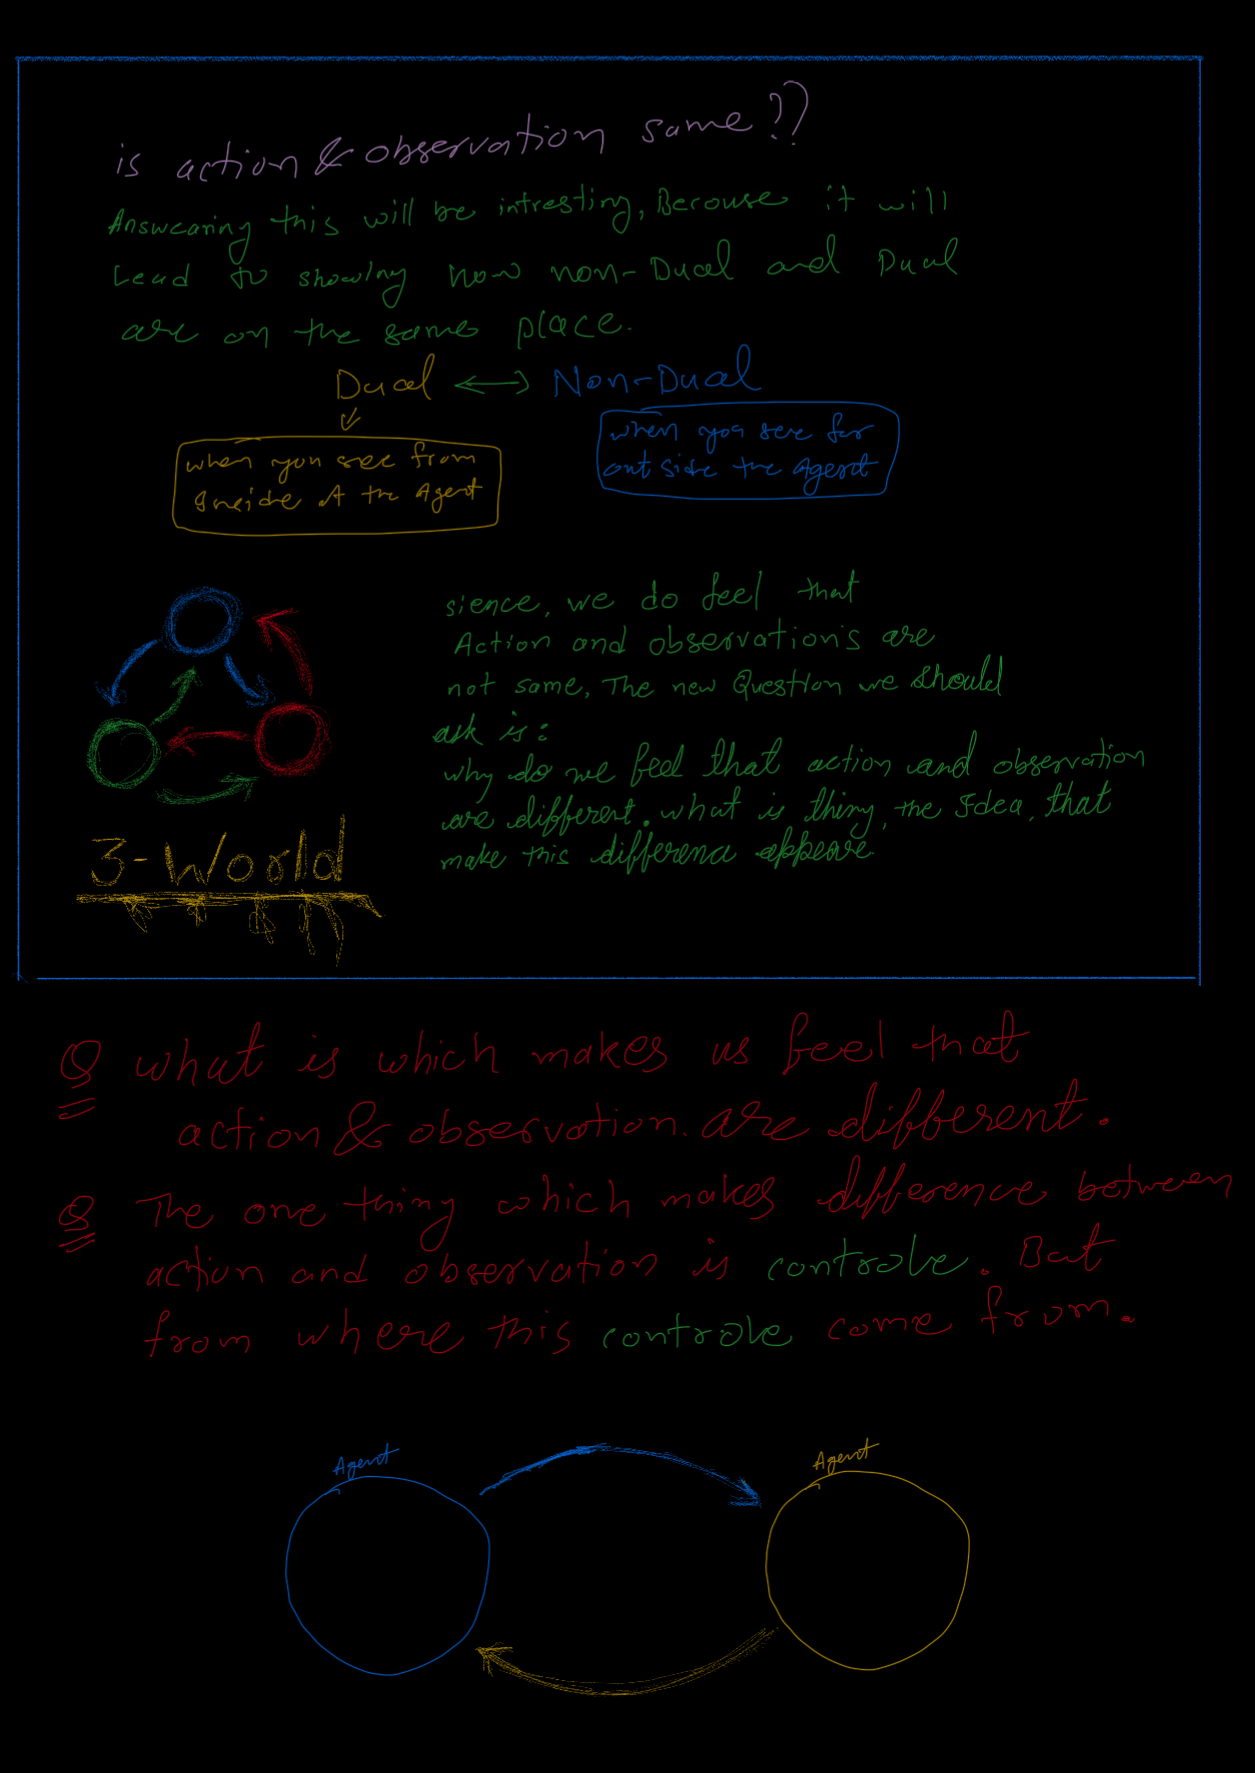 is action & observation same??
Answearing this will be intresting, Becouse it will
Lead to showing how non-Dual and Dual
are on the same place.
Dual ↔ Non-Dual
when you see from
Inside of the Agent
when you see for
out side the Agent
sience, we do feel that
Action and observations are
not same, The new Question we should
ask is:
why do we feel that action and observation
are different. what is thing, the Idea, that
make this difference appeare.
3-World
Q what is which makes us feel that
action & observation are different.
Q The one thing which makes difference between
action and observation is controle. But
from where this controle come from.
Agent
Agent